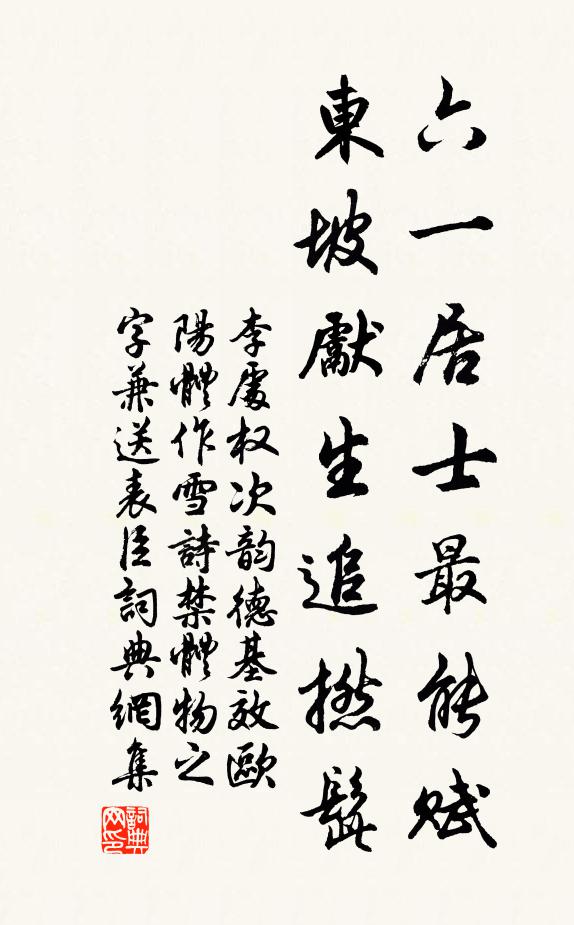 六一居士最能賦
東坡獻生追撚髭
李處权次韻德基效歐
陽體作雪詩禁體物之
字兼送表臣詞典網集
詞典
网印